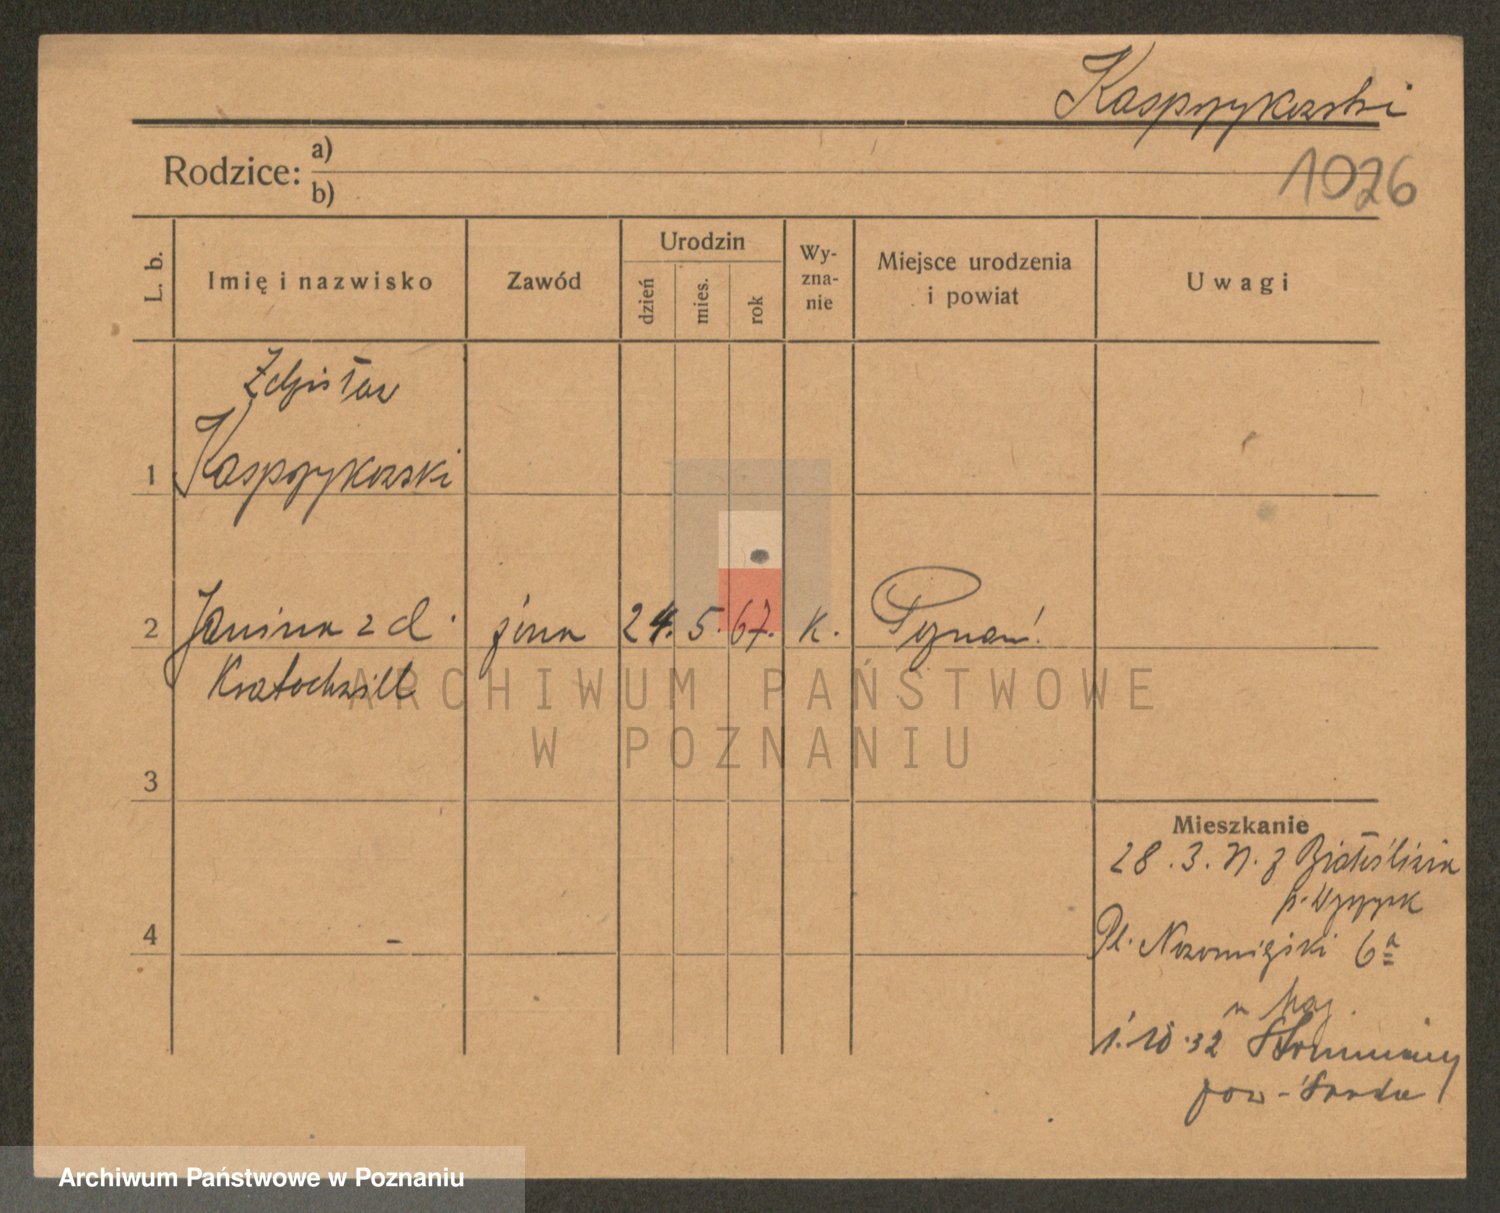 Kasprzykowski
Rodzice: a)
b)
1026
L. b.
Imię i nazwisko
Zawód
Urodzin
dzień
mies.
rok
Wy-
zna-
nie
Miejsce urodzenia
i powiat
Uwagi
Zdzisław
1 Kasprzykowski
2 Janina z d. żona 24. 5. 67. k. Poznań.
Kratochwill
ARCHIWUM PAŃSTWOWE
W POZNANIU
3
Mieszkanie
28. 3. z Białośliwia
p. Wyrzysk
4
Pl. Nowomiejski 6a
w maj.
1. 10. 32
pow - Środa
Archiwum Państwowe w Poznaniu